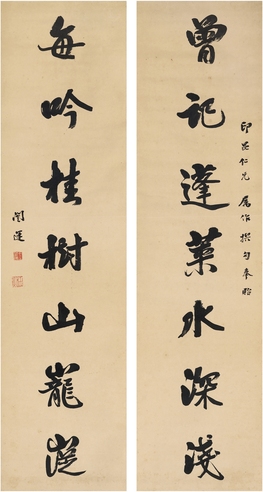 曾記蓬萊水深淺
印昆仁兄屬作撰句奉貽
每吟桂樹山巃嵷
闓運